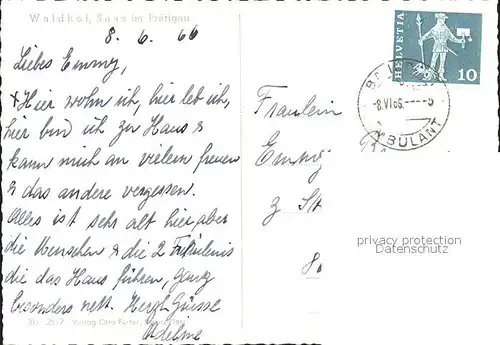 Waldhof, Saas im Prätigau
8. 6. 66
Liebes Emmy,
Hier wohn ich, hier leb ich,
hier bin ich zu Haus &
kann mich an vielem freuen
& das andere vergessen.
Alles ist sehr alt hier, aber
die Menschen & die 2 Fräuleins
die das Haus führen, ganz
besonders nett. Herzl. Grüsse
Adeline
Verlag Otto Furter, Davos
HELVETIA
10
8.VI.66.
AMBULANT
Fräulein
Emmy
z
8
privacy protection
Datenschutz